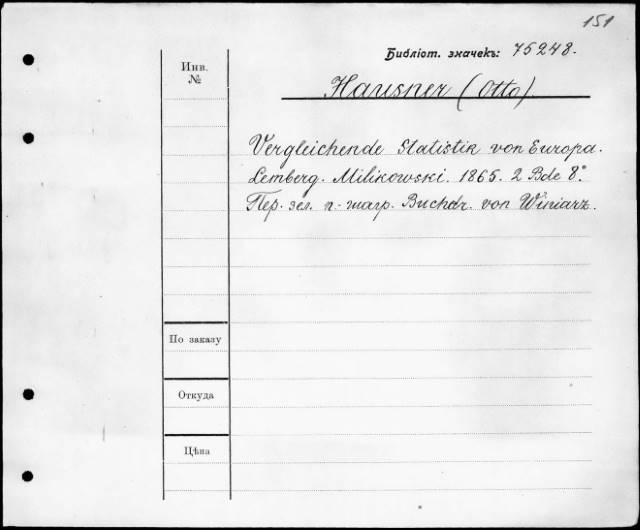 151
Библіот. значекъ: 75248.
Инв.
№
Hausner (Otto).
Vergleichende Statistik von Europa.
Lemberg. Milikowski. 1865. 2 Bde 8°
Пер. зел. п.-шагр. Buchdr. von Winiarz.
По заказу
Откуда
Цѣна